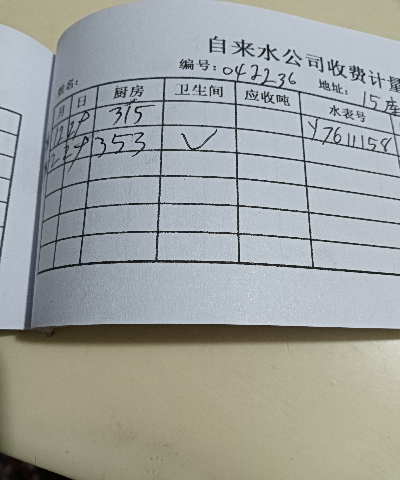 自来水公司收费计量
编号:042236 地址:15座
姓名:
月 日 厨房 卫生间 应收吨 水表号
12 28 315 Y7611158
2 28 353 ✓